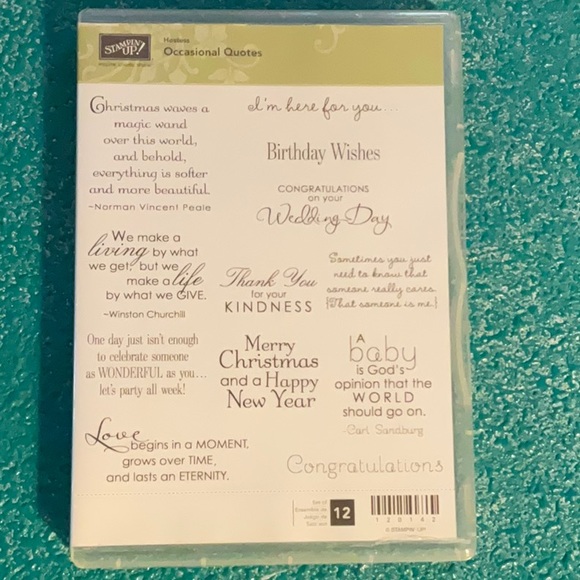 STAMPIN' UP!
Hostess
Occasional Quotes
Christmas waves a
magic wand
over this world,
and behold,
everything is softer
and more beautiful.
~Norman Vincent Peale
I'm here for you...
Birthday Wishes
CONGRATULATIONS
on your
Wedding Day
We make a
living by what
we get; but we
make a life
by what we GIVE.
~Winston Churchill
Thank You
for your
KINDNESS
Sometimes you just
need to know that
someone really cares.
{That someone is me.}
One day just isn't enough
to celebrate someone
as WONDERFUL as you...
let's party all week!
Merry
Christmas
and a Happy
New Year
A
baby
is God's
opinion that the
WORLD
should go on.
~Carl Sandburg
Love
begins in a MOMENT,
grows over TIME,
and lasts an ETERNITY.
Congratulations
Set of
Ensemble de
Juego de
12
120142